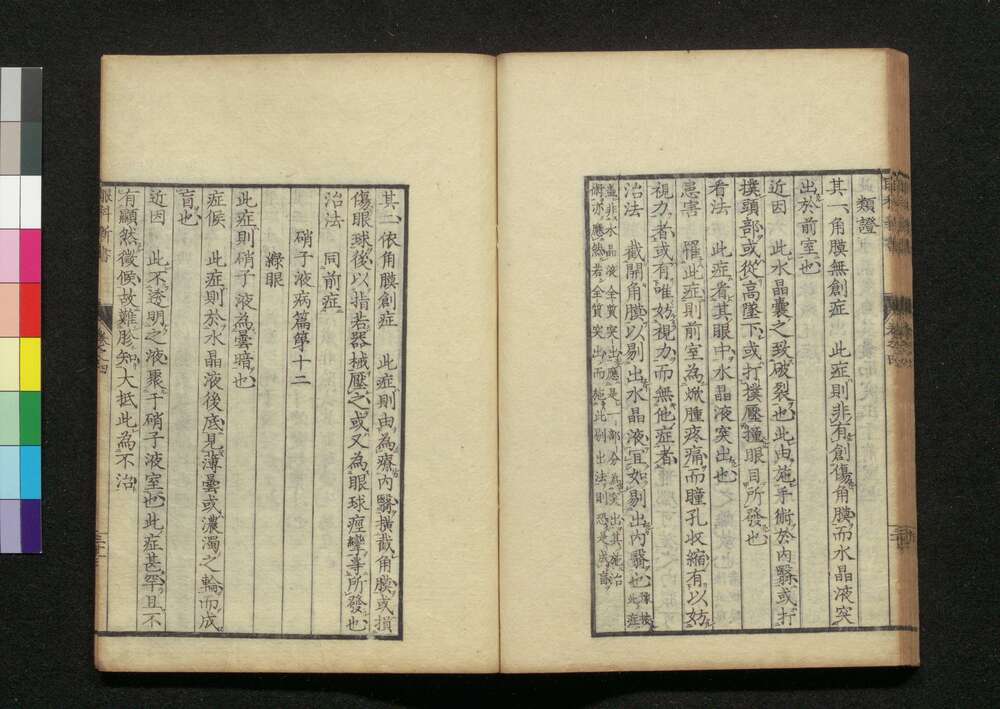 類證
其一、角膜無創症 此症則非有創傷角膜而水晶液突
出於前室也
近因 此水晶囊之致破裂也此由施手術於內翳或打
撲頭部或從高墜下或打撲壓撞眼目所發也
看法 此症看其眼中水晶液突出也
患害 罹此症則前室為焮腫疼痛而瞳孔收縮有以妨
視力者或有唯妨視力而無他症者
治法 截開角膜以剔出水晶液宜如剔出內翳也豫按此症
蓋非水晶液全質突出應是一部分為突出其施治
術亦應然若全質突出而施此剔出法則恐是處
其二、依角膜創症 此症則由為療內翳橫截角膜或損
傷眼球後以指若器械壓之或又為眼球痙攣等所發也
治法 同前症
硝子液病篇第十二
綠眼
此症則硝子液為曇暗也
症候 此症則於水晶液後底見薄曇或濃濁之輪而成
盲也
近因 此不透明之液聚于硝子液室也此症甚罕且不
有顯然徵候故難診知大抵此為不治
眼科新書
卷之四